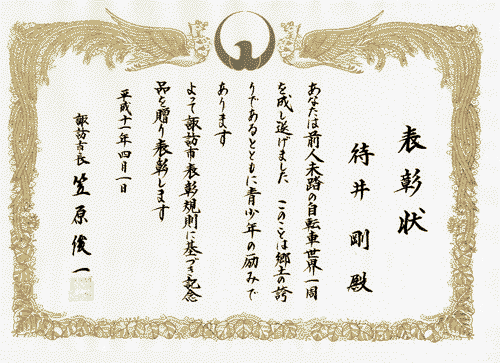 表彰状
待井 剛 殿
あなたは前人未踏の自転車世界一周
を成し遂げました このことは郷土の誇
りであるとともに青少年の励みで
あります
よって諏訪市表彰規則に基づき記念
品を贈り表彰します
平成十一年四月一日
諏訪市長 笠原俊一